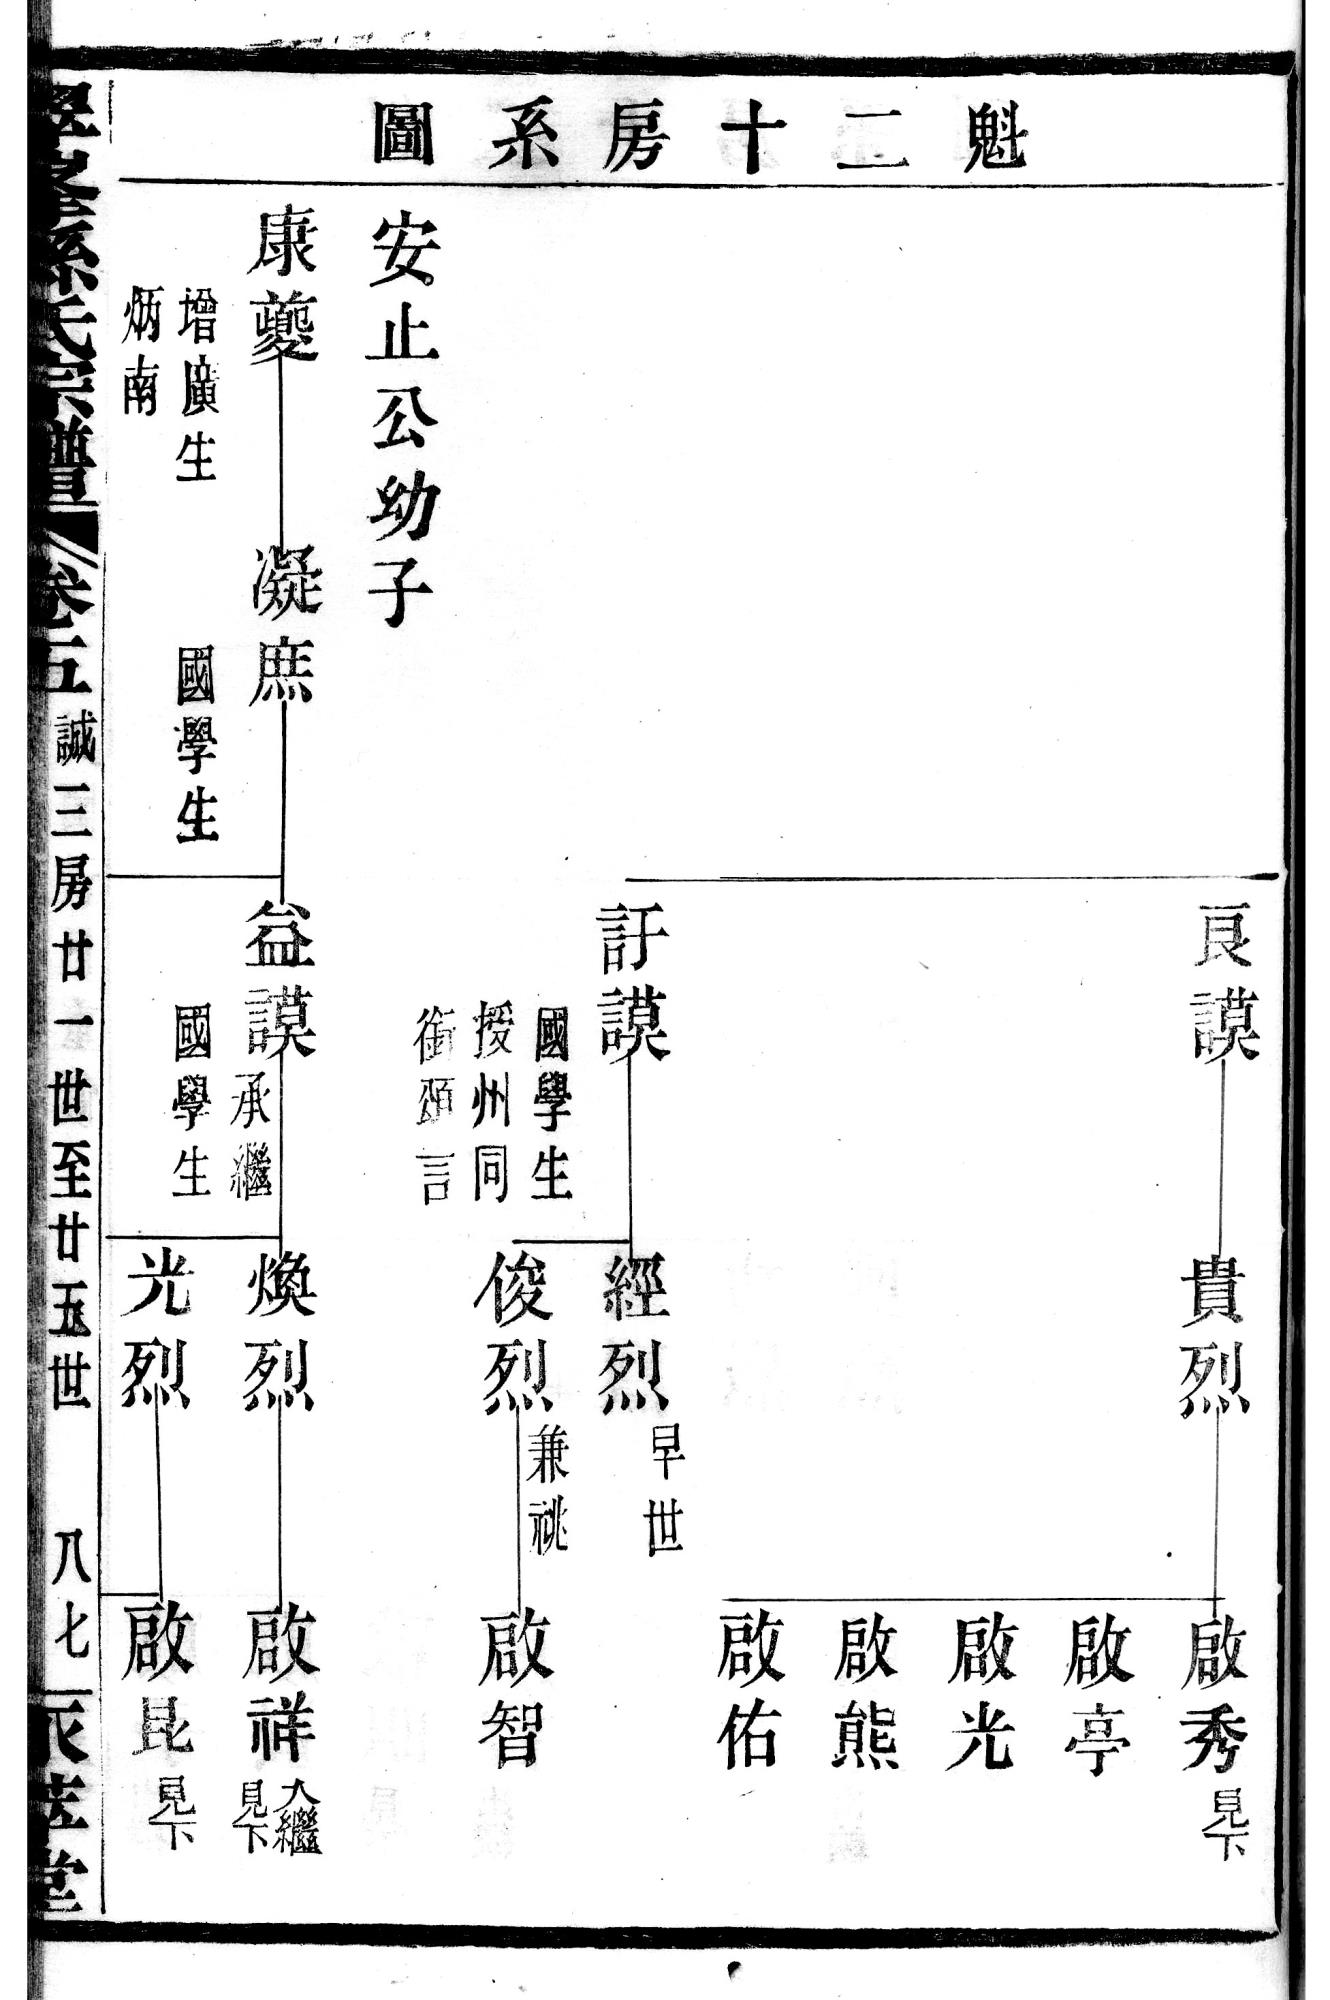 魁二十房系圖
良謨
貴烈
啟秀
見下
啟亭
啟光
啟熊
啟佑
訏謨
國學生
授州同
銜頌言
經烈
早世
俊烈
兼祧
啟智
安止公幼子
康夔
增廣生
炳南
凝庶
國學生
益謨
承繼
國學生
煥烈
啟祥
入繼
見下
光烈
啟昆
見下
孫氏宗譜
卷五
誠三房廿一世至廿五世
八七
堂